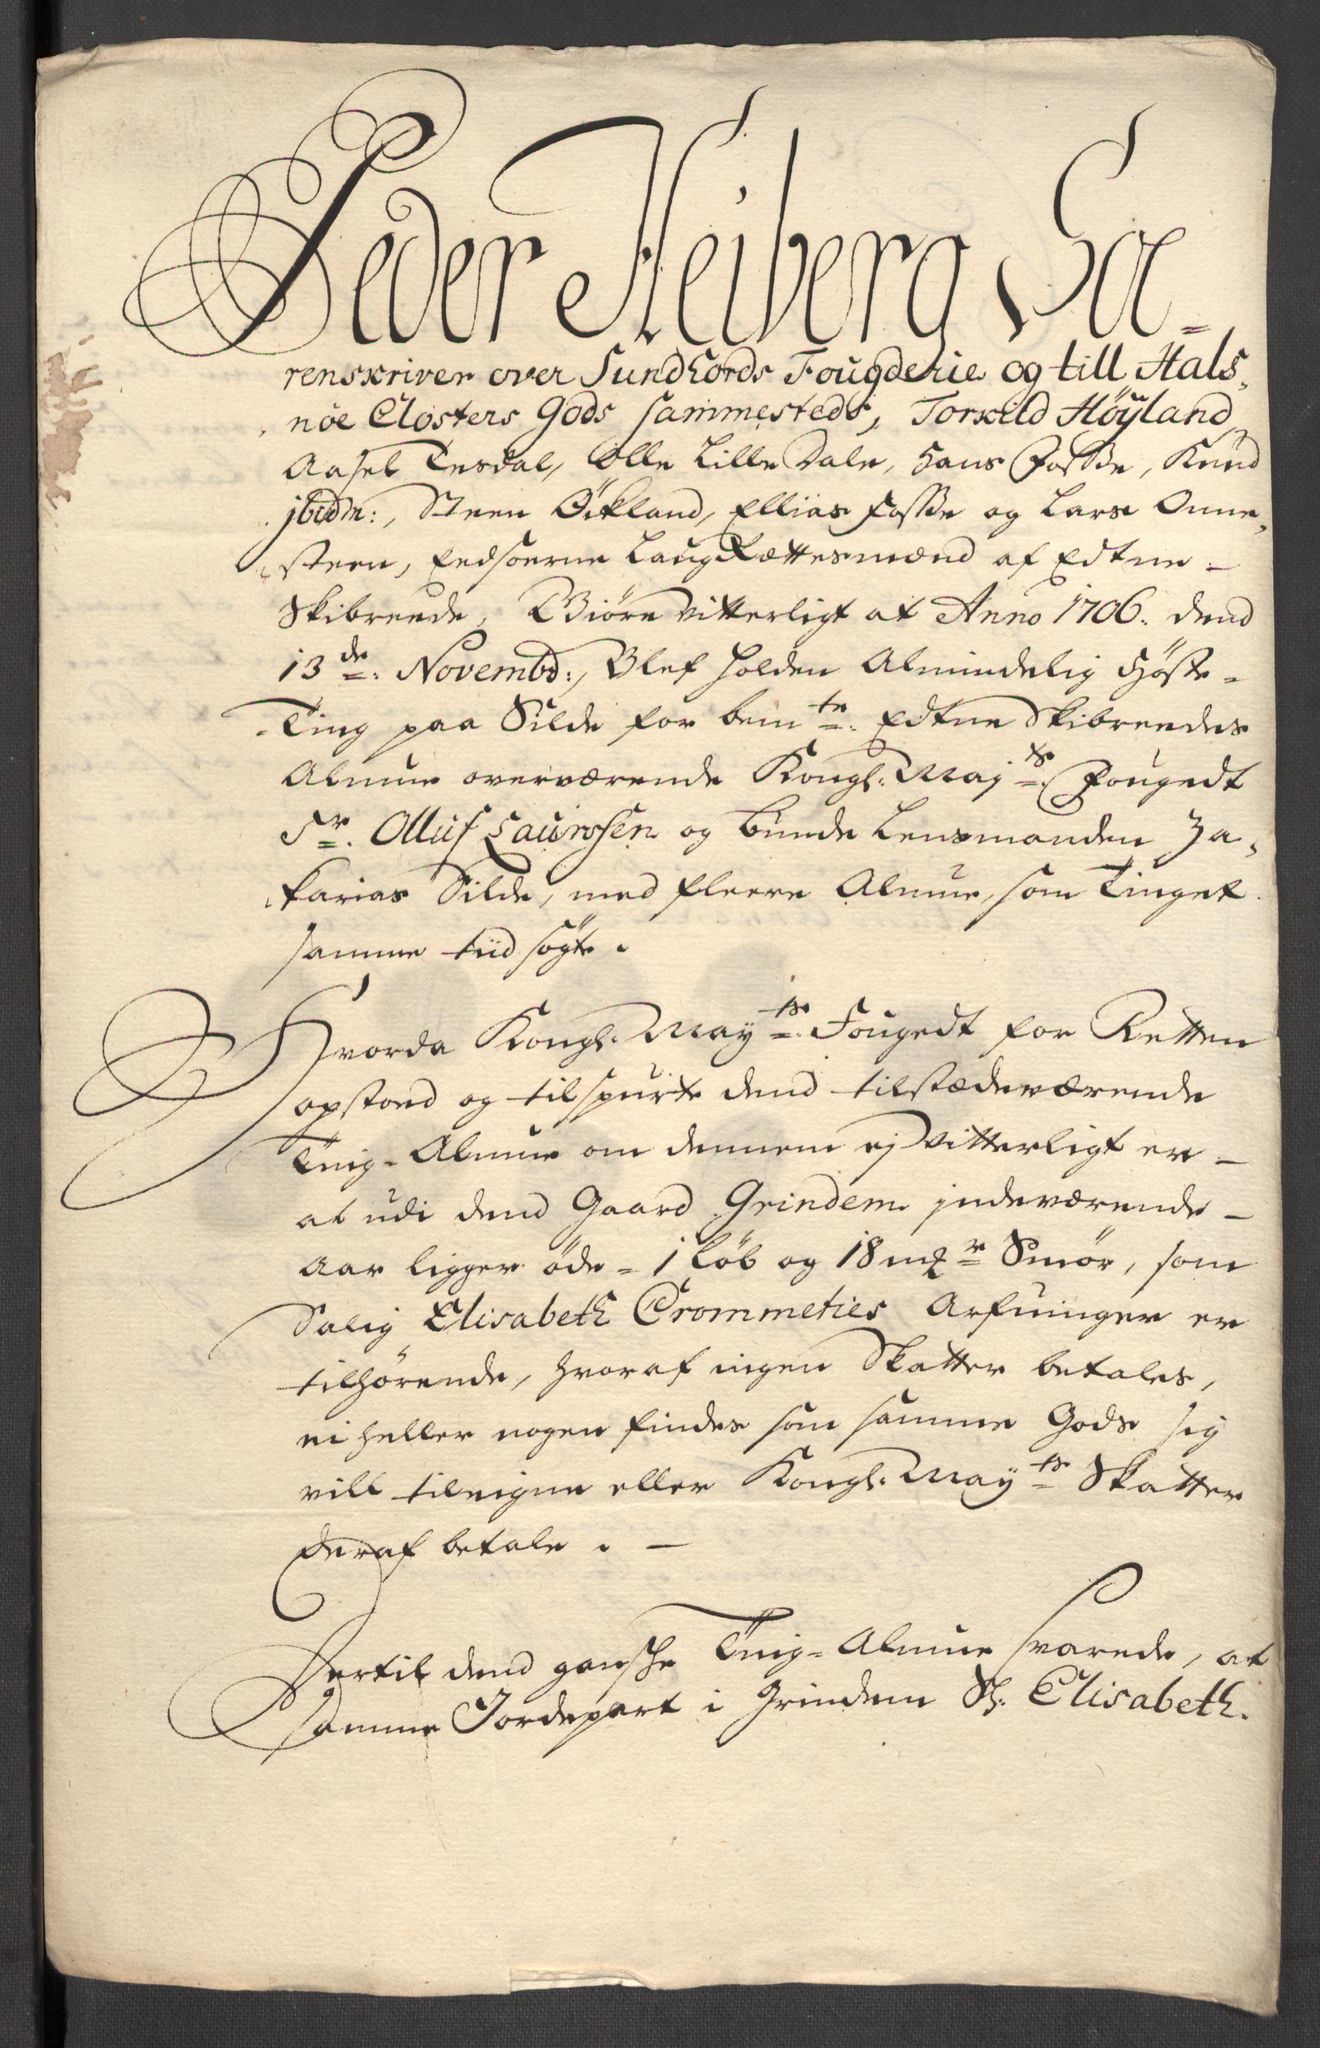 Peder Heiberg So=
renskriver over Sundhords Fougderie og till Hals=
nöe Closters Gods sammesteds, Torkild Höyland,
Aasel Tesdal, Olle Lille Dale, Hans Fosse, Knud
jbidm:, Steen Öckland, Ellias Fosse og Lars Onne=
steen, Eedsorne LaugRættesmænd af Edtne
Skibreede, Giöre Vitterligt at Anno 1706. dend
13de. Novembd:, Blef holden Almindelig Höste
Ting paa Silde for bemte. Edtne Skibreedes
Almue overværende Kongl: Mayts. Fougedt
Sr. Olluf Laurssen og Bunde Lensmanden Za=
karias Silde, med fleere Almue, som Tinget
samme tiid sögte.
Hvorda Kongl: Mayts. Fougedt for Retten
opstoed og tilspurte dend tilstædeværende
Ting-Almue om dennem ej Vitterligt er
at udi dend Gaard Grindem indeværende
Aar ligger öde - 1 Löb og 18 mkr Smör, som
Salig Elisabeth Crommeties Arfuinger er
tilhörende, hvoraf ingen Skatter betales,
ei heller nogen findes som samme Gods sig
vill tileigne eller Kongl: Mayts Skatter
deraf betale.
Hertil dend gansche Ting-Almue svarede, at
samme Jordepart i Grindem Sl. Elisabeth